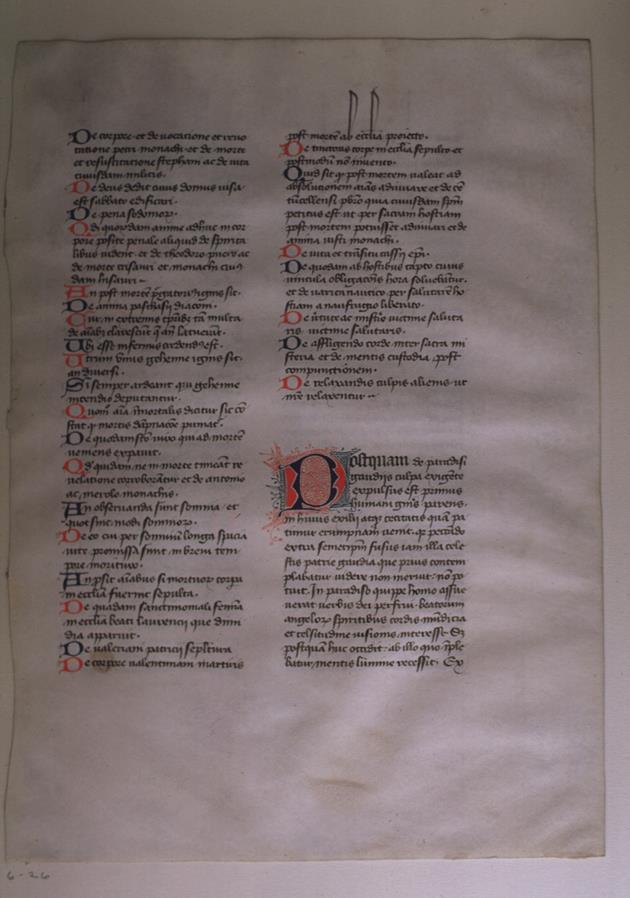 De corpore et de vocacione et revo
catione petri monachi et de morte
et resuscitatione stephani ac de vita
cuiusdam militis.
De deus dedit cuius domus visa
est sabbato edificari.
De pena sodomoꝝ.
Qd quorūdam anime adhuc in cor
pore posite penale aliquid de spirita
libus vident et de theodoro puero ac
de morte crisauri et monachi
An post mortē purgatoriꝰ ignis sit.
De anima paschasii diaconi.
Cur in extremis tꝑribꝫ tā multa
de aīabꝫ clarescūt q̄ añ latuerūt.
Ubi esse infernus credendꝰ est.
Utrum vnus gehenne ignis sit
an diversi.
Si semper ardeant qui gehenne
incendio deputantur.
Quomō aīa īmortalis dicitur sic cō
stat ꝙ mortis dāpnacōe puniat᷑.
De quodam scō viro qui ad mortē
veniens expavit.
Qd quidam ne in morte timeāt re
velatione corroborātur et de antonio
ac merulo monachis.
An observanda sunt somnia et
quot sint modi somnioꝝ.
De eo cui per somniū longa spacia
vite promissa sunt in brevi tem
pore morituro.
An ꝓsit aīabus si mortuoꝝ corpa
in ecclīa fuerint sepulta.
De quadam sanctimoniali femīa
in ecclīa beati laurencii que dimi
dia apparuit.
De valeriani patricii sepltura
De corpore valentiniani martiris
post mortē ab ecclīa proiecto.
De tinctoris corpe in ecclīa sepulto et
postmodū nō invento.
Quid sit ꝙ post mortem valeat ad
absolutionem aīas adiuvare et de cē
tūcellensi pbrō quā cuiusdam spm̄
petitus est ut per sacram hostiam
post mortem potuisset adiuvari et de
anima iusti monachi.
De vita et trāsitu cassii epī.
De quodam ab hostibus capto cuius
vincula oblegacōnis hora solvebātur
et de varica nautico per salutarē ho
stiam a naufragio liberato.
De virtute ac misterio victime saluta
ris victime salutaris.
De affligendo corde inter sacra mi
steria et de mentis custodia post
compunctionem.
De relaxandis culpis alienis ut
nr̄e relaxentur
Postquam de paradisi
gaudiis culpa exigēte
expulsus est primus
humani gn̄is parens
in huius exilii atqꝫ cecitatis quā pa
timur erumpnam venit. qr peccādo
extra semetipm̄ fusus iam illa cele
stis patrie gaudia que prius contem
plabatur videre non meruit no po
tuit. In paradiso quippe homo assue
verat verbis dei perfrui beatorum
angeloꝝ spiritibus cordis mūdicia
et celsitudine visionis interesse. Sꝫ
postquā huc occidit ab illo quo īple
batur mentis lumine recessit. Ex
6-26